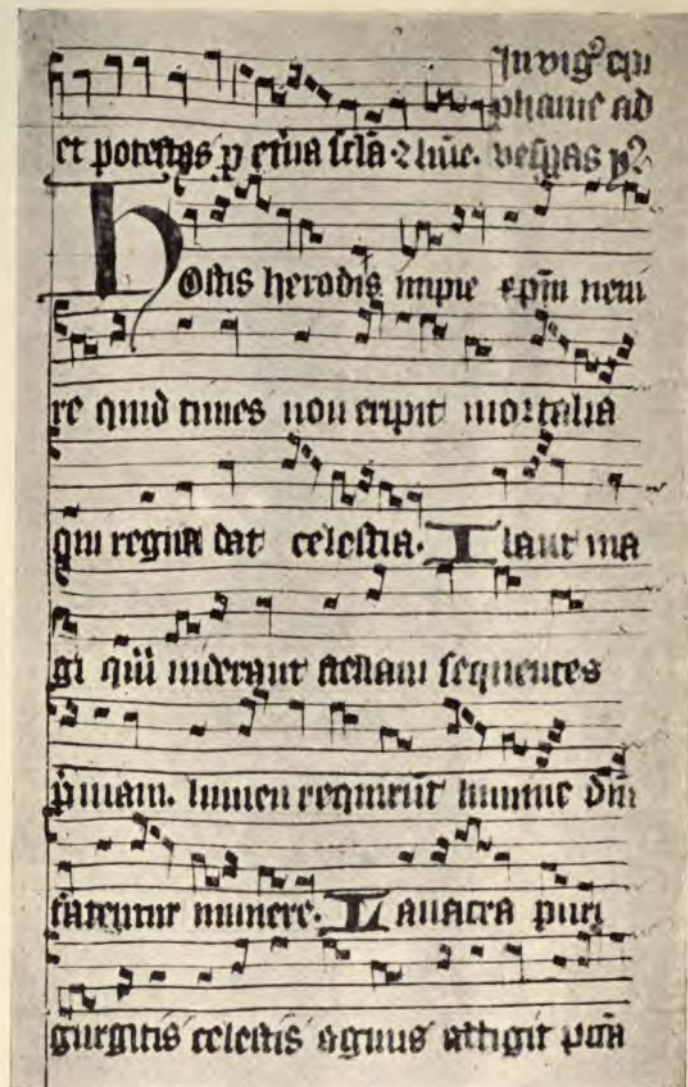 In vig᷒ epi
phanie ad
et potestas p et̄na scl̄a · ⁊ hūc · vesp̄as y᷒
Hostis herodis impie xp̄m veni
re quid times non eripit mortalia
qui regna dat celestia. Ibant ma
gi quā viderant stellam sequentes
p̄uiam. lumen requirūt lumine dm̄
fatentur munere. Lauacra puri
gurgitis celestis agnus attigit pc̄a